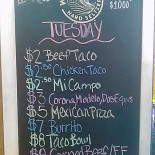 HAND SELECTED
$1000
TUESDAY
$2 Beef Taco
$2.50 Chicken Taco
$2.50 Mi Campo
$3 Corona, Modelo, Dos Equis
$5 Mexican Pizza
$7 Burrito
$8 Taco Bowl
Corned Beef